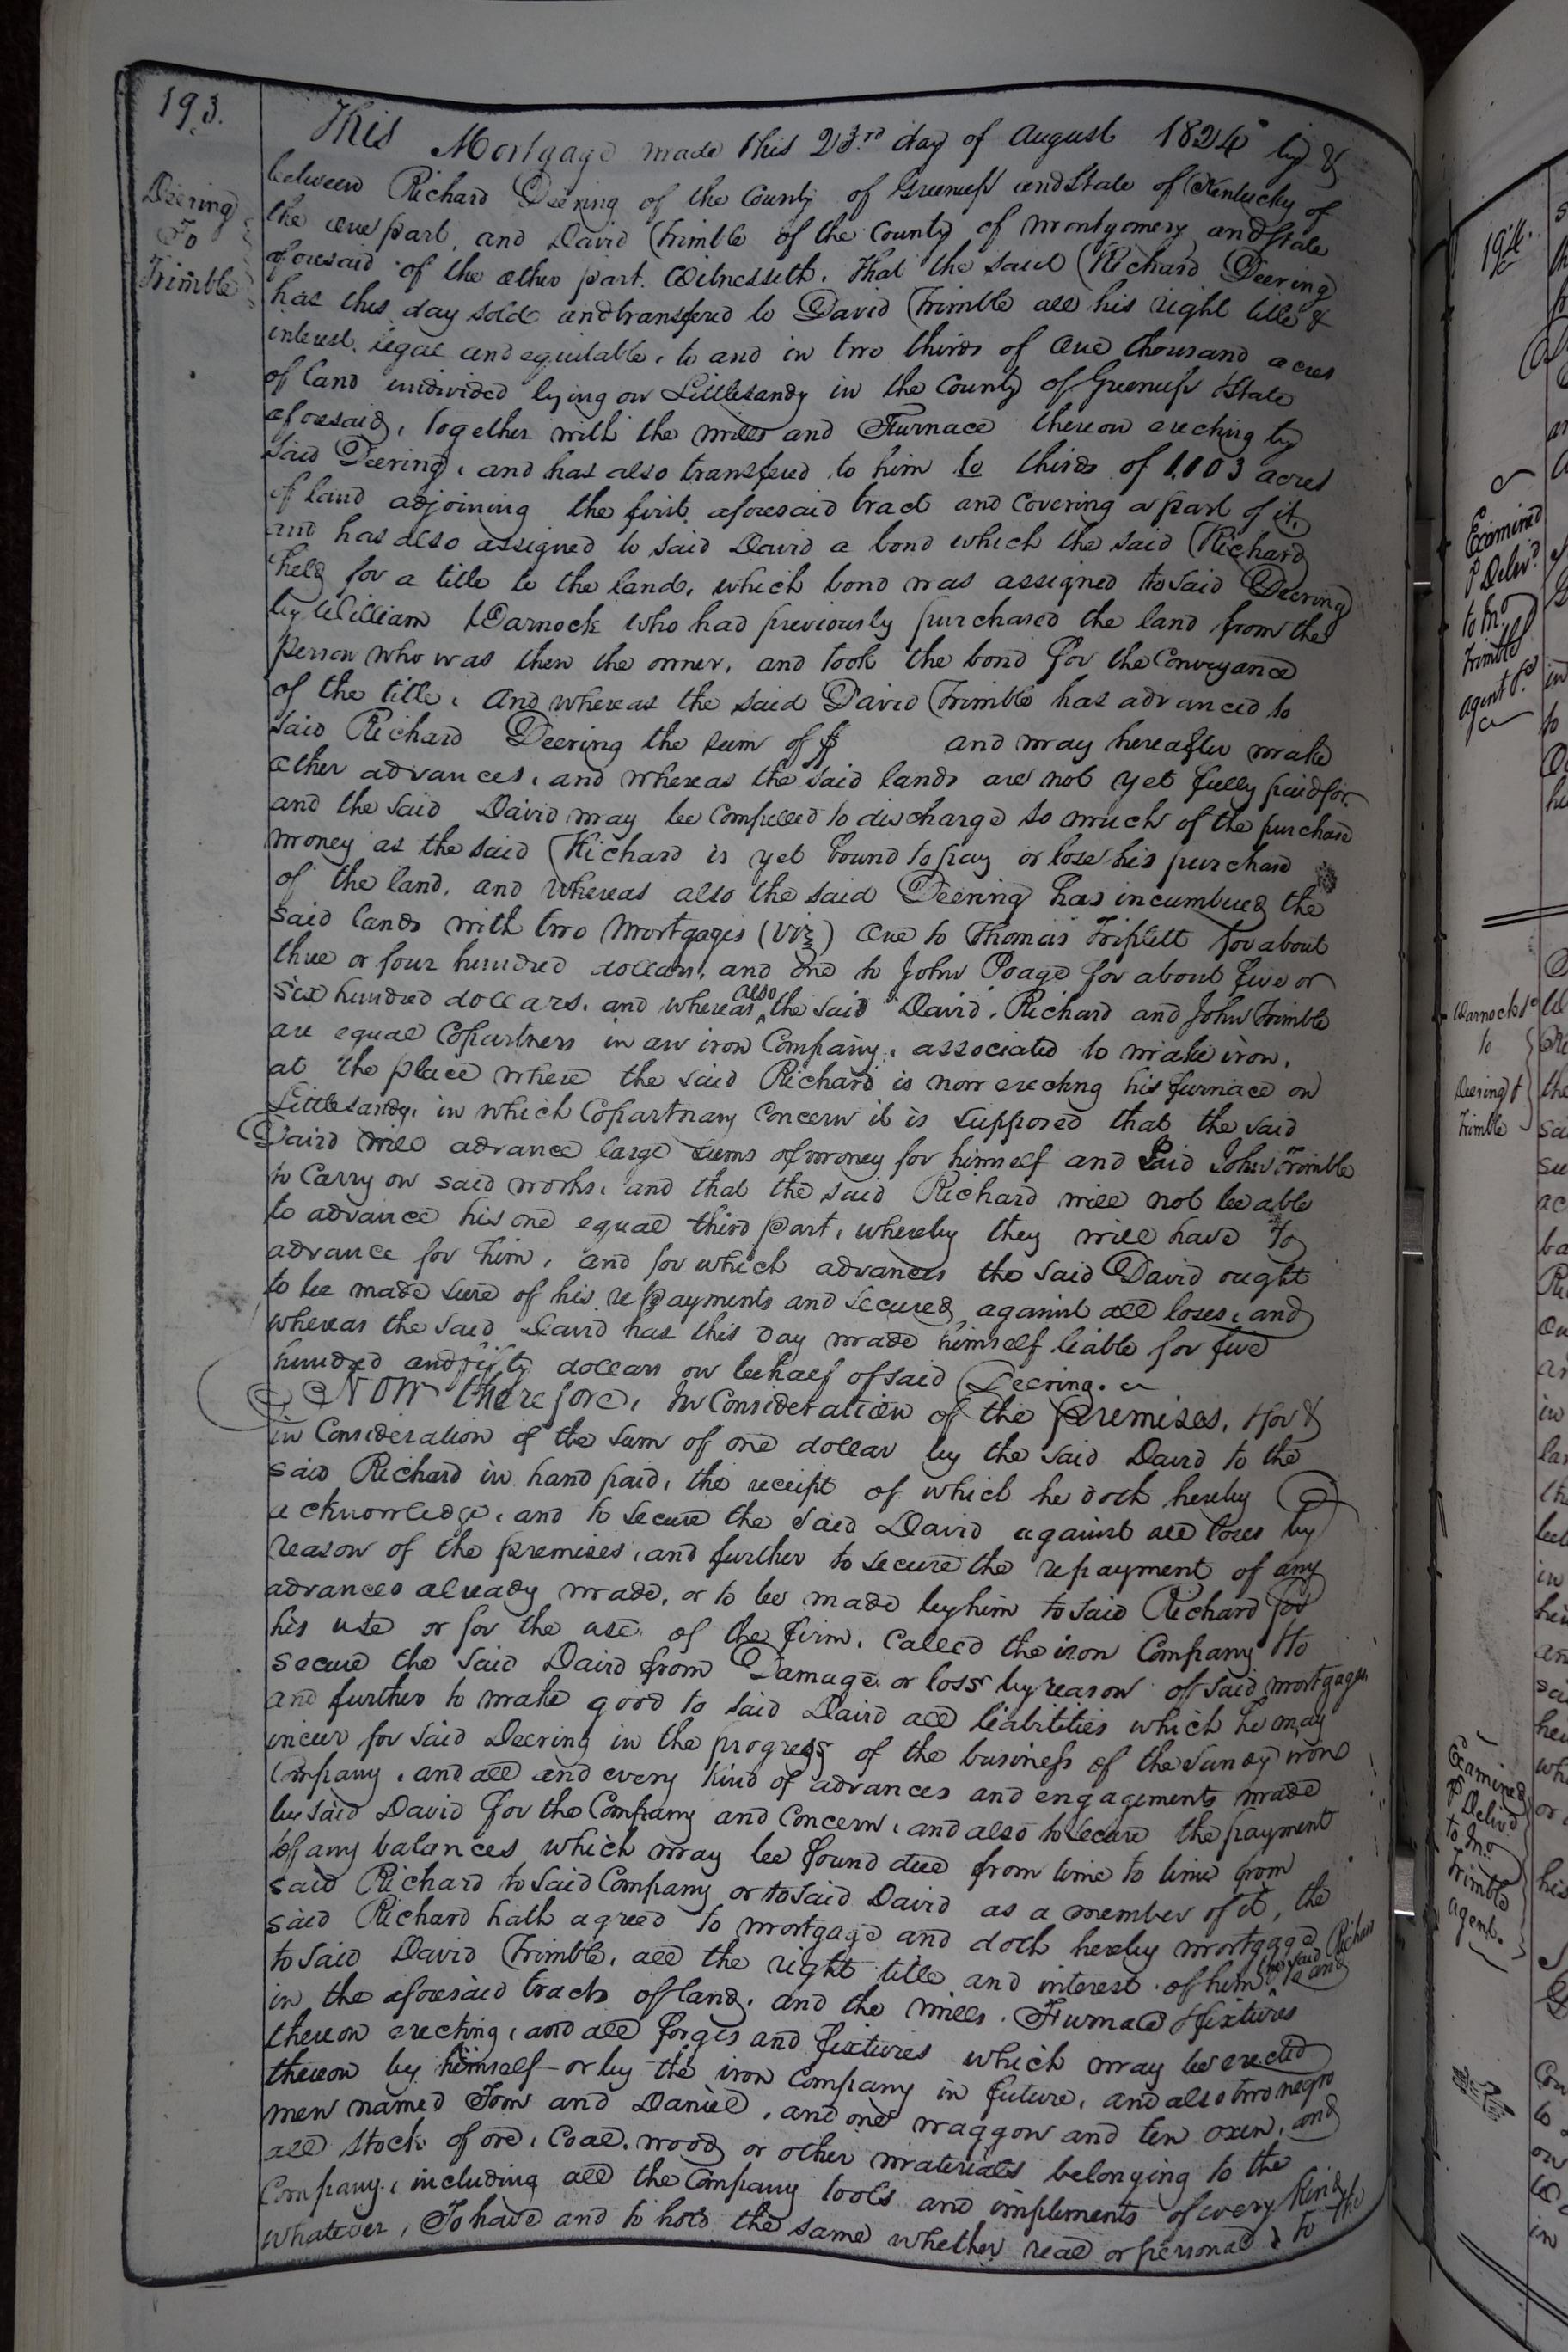 193.
Deering
To
Trimble
This Mortgage made this 23rd day of August 1824 by &
between Richard Deering of the County of Greenup and State of Kentucky of
the one part, and David Trimble of the County of Montgomery and State
aforesaid of the other part. Witnesseth, That the said Richard Deering
has this day sold and transfered to David Trimble all his right title &
interest, legal and equitable, to and in two thirds of One thousand acres
of land undivided lying on Littlesandy in the County of Greenup & State
aforesaid, together with the mills and Furnace thereon erecting by
said Deering, and has also transfered to him to thirds of 1,103 acres
of land adjoining the first aforesaid tract and Covering a part of it,
and has also assigned to said David a bond which the said Richard
held for a title to the land, which bond was assigned to said Deering
by William Warnock who had previously purchased the land from the
person who was then the owner, and took the bond for the Conveyance
of the title, And whereas the said David Trimble has advanced to
said Richard Deering the sum of $ and may hereafter make
other advances, and whereas the said lands are not yet fully paid for.
and the said David may be Compelled to discharge so much of the purchase
money as the said Richard is yet bound to pay or lose his purchase
of the land, and whereas also the said Deering has incumbered the
said lands with two Mortgages (viz) One to Thomas Triplett for about
three or four hundred dollars, and one to John Poage for about five or
six hundred dollars. and whereas also the said David, Richard and John Trimble
are equal Copartners in an iron Company, associated to make iron,
at the place where the said Richard is now erecting his furnace on
Littlesandy, in which Copartnary Concern it is supposed that the said
David will advance large sums of money for himself and said John Trimble
to Carry on said works, and that the said Richard will not be able
to advance his one equal third part, whereby they will have to
advance for him, and for which advances the said David ought
to be made sure of his repayments and secured against all loses, and
whereas the said David has this day made himself liable for five
hundred and fifty dollars on behalf of said Deering.
Now therefore, In Consideration of the premises, & for &
in Consideration of the sum of one dollar by the said David to the
said Richard in hand paid, the receipt of which he doth hereby
acknowledge, and to secure the said David against all loses by
reason of the premises, and further to secure the repayment of any
advances already made, or to be made by him to said Richard for
his use or for the use of the firm, called the iron Company & to
secure the said David from Damage or loss by reason of said mortgages
and further to make good to said David all liabitities which he may
incur for said Deering in the progress of the business of the Sandy iron
Company, and all and every kind of advances and engagements made
by said David for the Company and Concern, and also to secure the payment
of any balances which may be found due from time to time from
said Richard to said Company or to said David as a member of it, the
said Richard hath agreed to mortgage and doth hereby mortgage
to said David Trimble, all the right title and interest of him the said Richard
in the aforesaid tracts of land, and the mills, Furnace & fixtures
thereon erecting, and all forges and fixtures which may be erected
thereon by himself or by the iron Company in future, and also two negro
men named Tom and Daniel, and one waggon and ten oxen, and
all stock of ore, Coal, wood or other materials belonging to the
Company, including all the Company tools and implements of every kind
whatever, To have and to hold the same whether real or personal, to the
194.
Examined
& Deliv.d
to Jno
Trimble
agent &c
Warnock &c
to
Deering &
Trimble
Examined
& Deliv.d
to Jno
Trimble
agent.